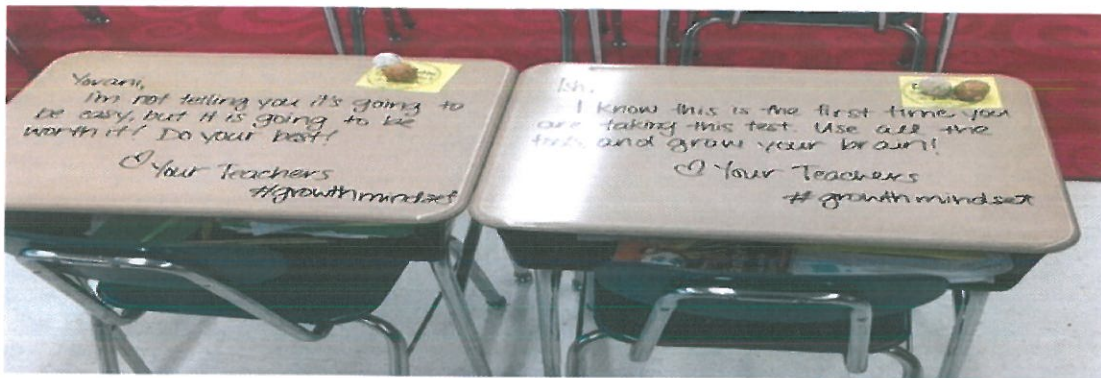 Yovani,
I'm not telling you it's going to
be easy, but it is going to be
worth it! Do your best!
♡ Your Teachers
#growthmindset
Ish,
I know this is the first time you
are taking this test. Use all the
and grow your brain!
♡ Your Teachers
#growthmindset